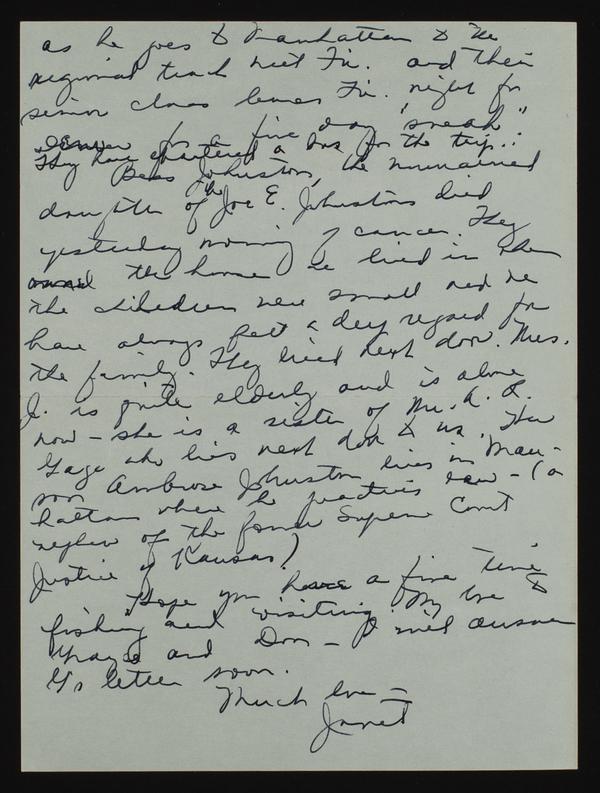 as he goes to Manhattan to the
regional track meet Fri. and their
senior class leaves Fri. night for
Denver for a five day "sneak"
They have chartered a bus for the trip.
Bess Johnston, the unmarried
daughter of the Joe E. Johnstons died
yesterday morning of cancer. They
owned the home we lived in when
the children were small and we
have always felt a deep regard for
the family. They lived next door. Mrs.
J. is quite elderly and is alone
now - she is a sister of Mr. A. L.
Gage who lives next door to us. Her
son Ambrose Johnston lives in Man-
hattan where he practices law - (a
nephew of the former Supreme Court
Justice of Kansas)
Hope you have a fine time
fishing and visiting. My love to
Grayce and Don - I will answer
G's letter soon.
Much love -
Janet